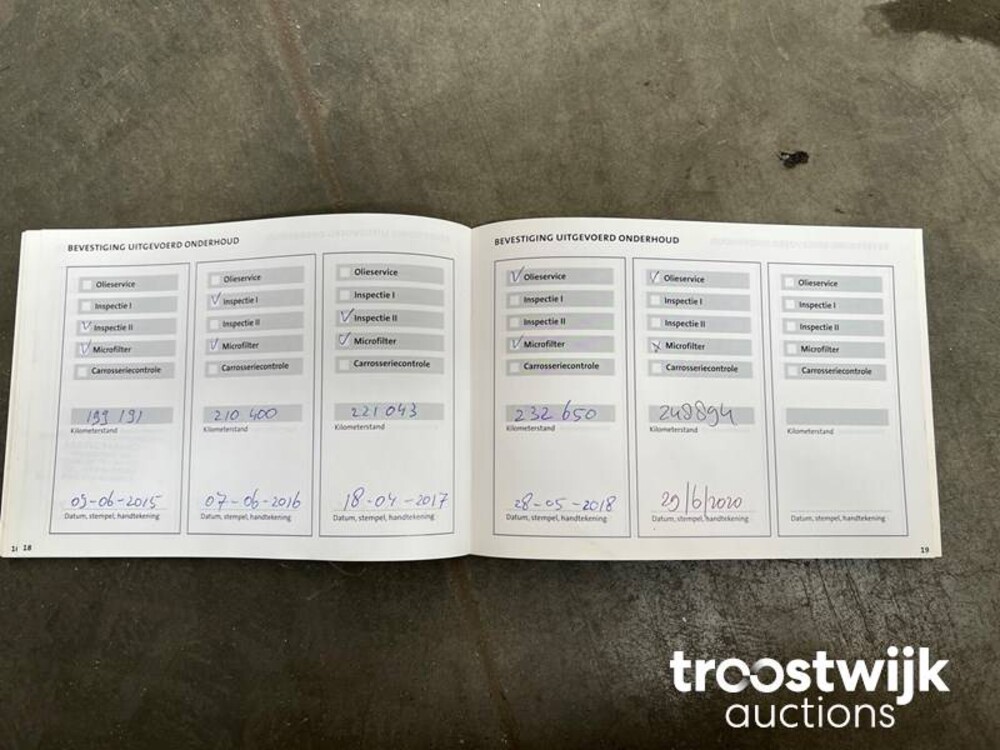 BEVESTIGING UITGEVOERD ONDERHOUD
Olieservice
Inspectie I
Inspectie II
Microfilter
Carrosseriecontrole
199 191
Kilometerstand
05-06-2015
Datum, stempel, handtekening
Olieservice
Inspectie I
Inspectie II
Microfilter
Carrosseriecontrole
210 400
Kilometerstand
07-06-2016
Datum, stempel, handtekening
Olieservice
Inspectie I
Inspectie II
Microfilter
Carrosseriecontrole
221 043
Kilometerstand
18-04-2017
Datum, stempel, handtekening
18
BEVESTIGING UITGEVOERD ONDERHOUD
Olieservice
Inspectie I
Inspectie II
Microfilter
Carrosseriecontrole
232 650
Kilometerstand
28-05-2018
Datum, stempel, handtekening
Olieservice
Inspectie I
Inspectie II
Microfilter
Carrosseriecontrole
248894
Kilometerstand
29/6/2020
Datum, stempel, handtekening
Olieservice
Inspectie I
Inspectie II
Microfilter
Carrosseriecontrole
Kilometerstand
Datum, stempel, handtekening
19
troostwijk
auctions